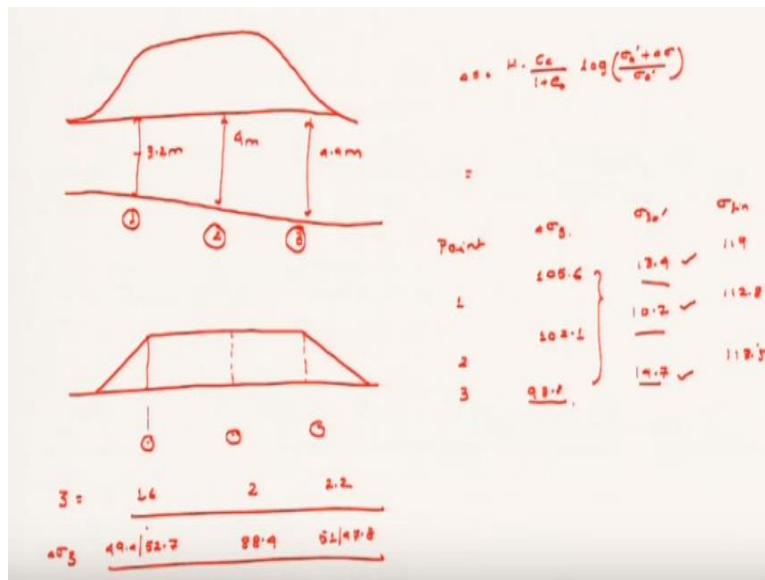 Δs = H. Cc / 1+e₀ log (σ₀'+Δσ / σ₀')
3.2m
4m
4.4m
=
① ② ③
Point Δσ₃. σ₃₀' σfin
105.6 13.4 ✓ 119
1
10.7 ✓ 112.8
102.1
2
14.7 ✓ 113.5
3 98.8.
① ② ③
3 = 1.6 2 2.2
Δσ₃ 49.4/52.7 88.4 51/47.8